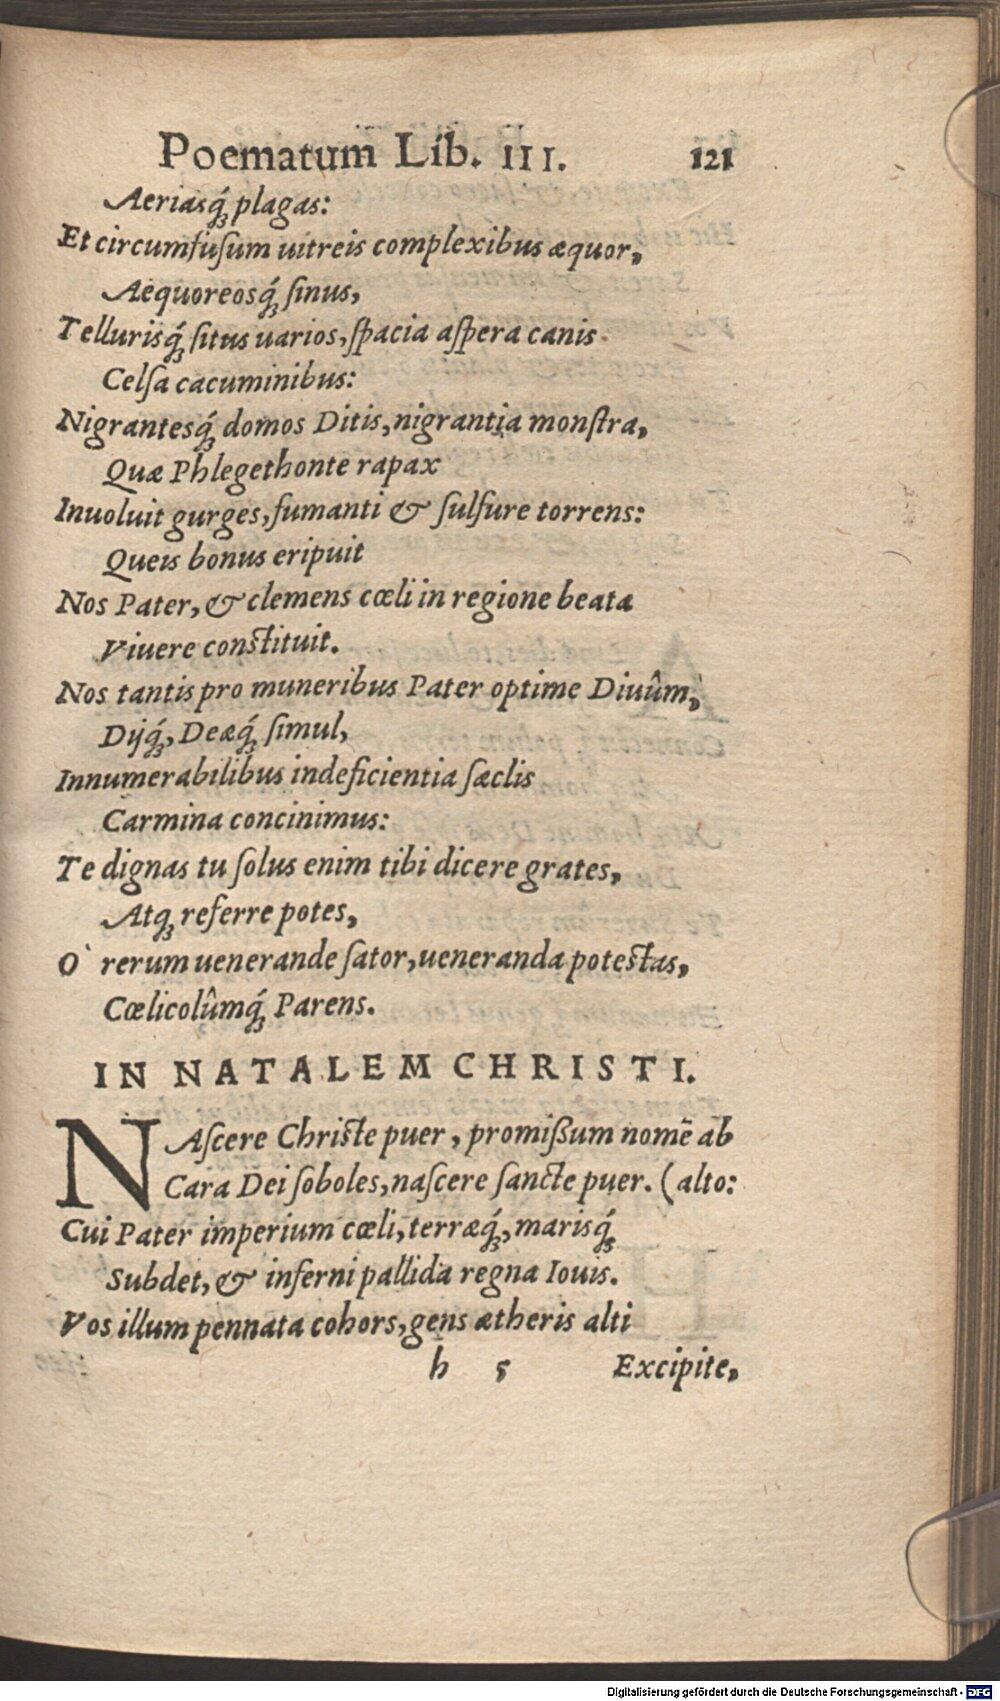 Poematum Lib. III. 121
Aeriasq́ꝫ plagas:
Et circumfuſum uitreis complexibus æquor,
Aequoreosq́ꝫ ſinus,
Tellurisq́ꝫ ſitus uarios, ſpacia aſpera canis
Celſa cacuminibus:
Nigrantesq́ꝫ domos Ditis, nigrantia monſtra,
Quæ Phlegethonte rapax
Inuoluit gurges, fumanti & ſulfure torrens:
Queis bonus eripuit
Nos Pater, & clemens cœli in regione beata
Viuere conſtituit.
Nos tantis pro muneribus Pater optime Diuûm,
Dijq́ꝫ, Deæq́ꝫ ſimul,
Innumerabilibus indeficientia ſæclis
Carmina concinimus:
Te dignas tu ſolus enim tibi dicere grates,
Atqꝫ referre potes,
O` rerum uenerande ſator, ueneranda poteſtas,
Cœlicolûmq́ꝫ Parens.
IN NATALEM CHRISTI.
NAſcere Chriſte puer, promißum nomē ab
Cara Dei ſoboles, naſcere ſancte puer. (alto:
Cui Pater imperium cœli, terræq́ꝫ, marisq́ꝫ
Subdet, & inferni pallida regna Iouis.
Vos illum pennata cohors, gens ætheris alti
h 5 Excipite,
Digitalisierung gefördert durch die Deutsche Forschungsgemeinschaft - DFG